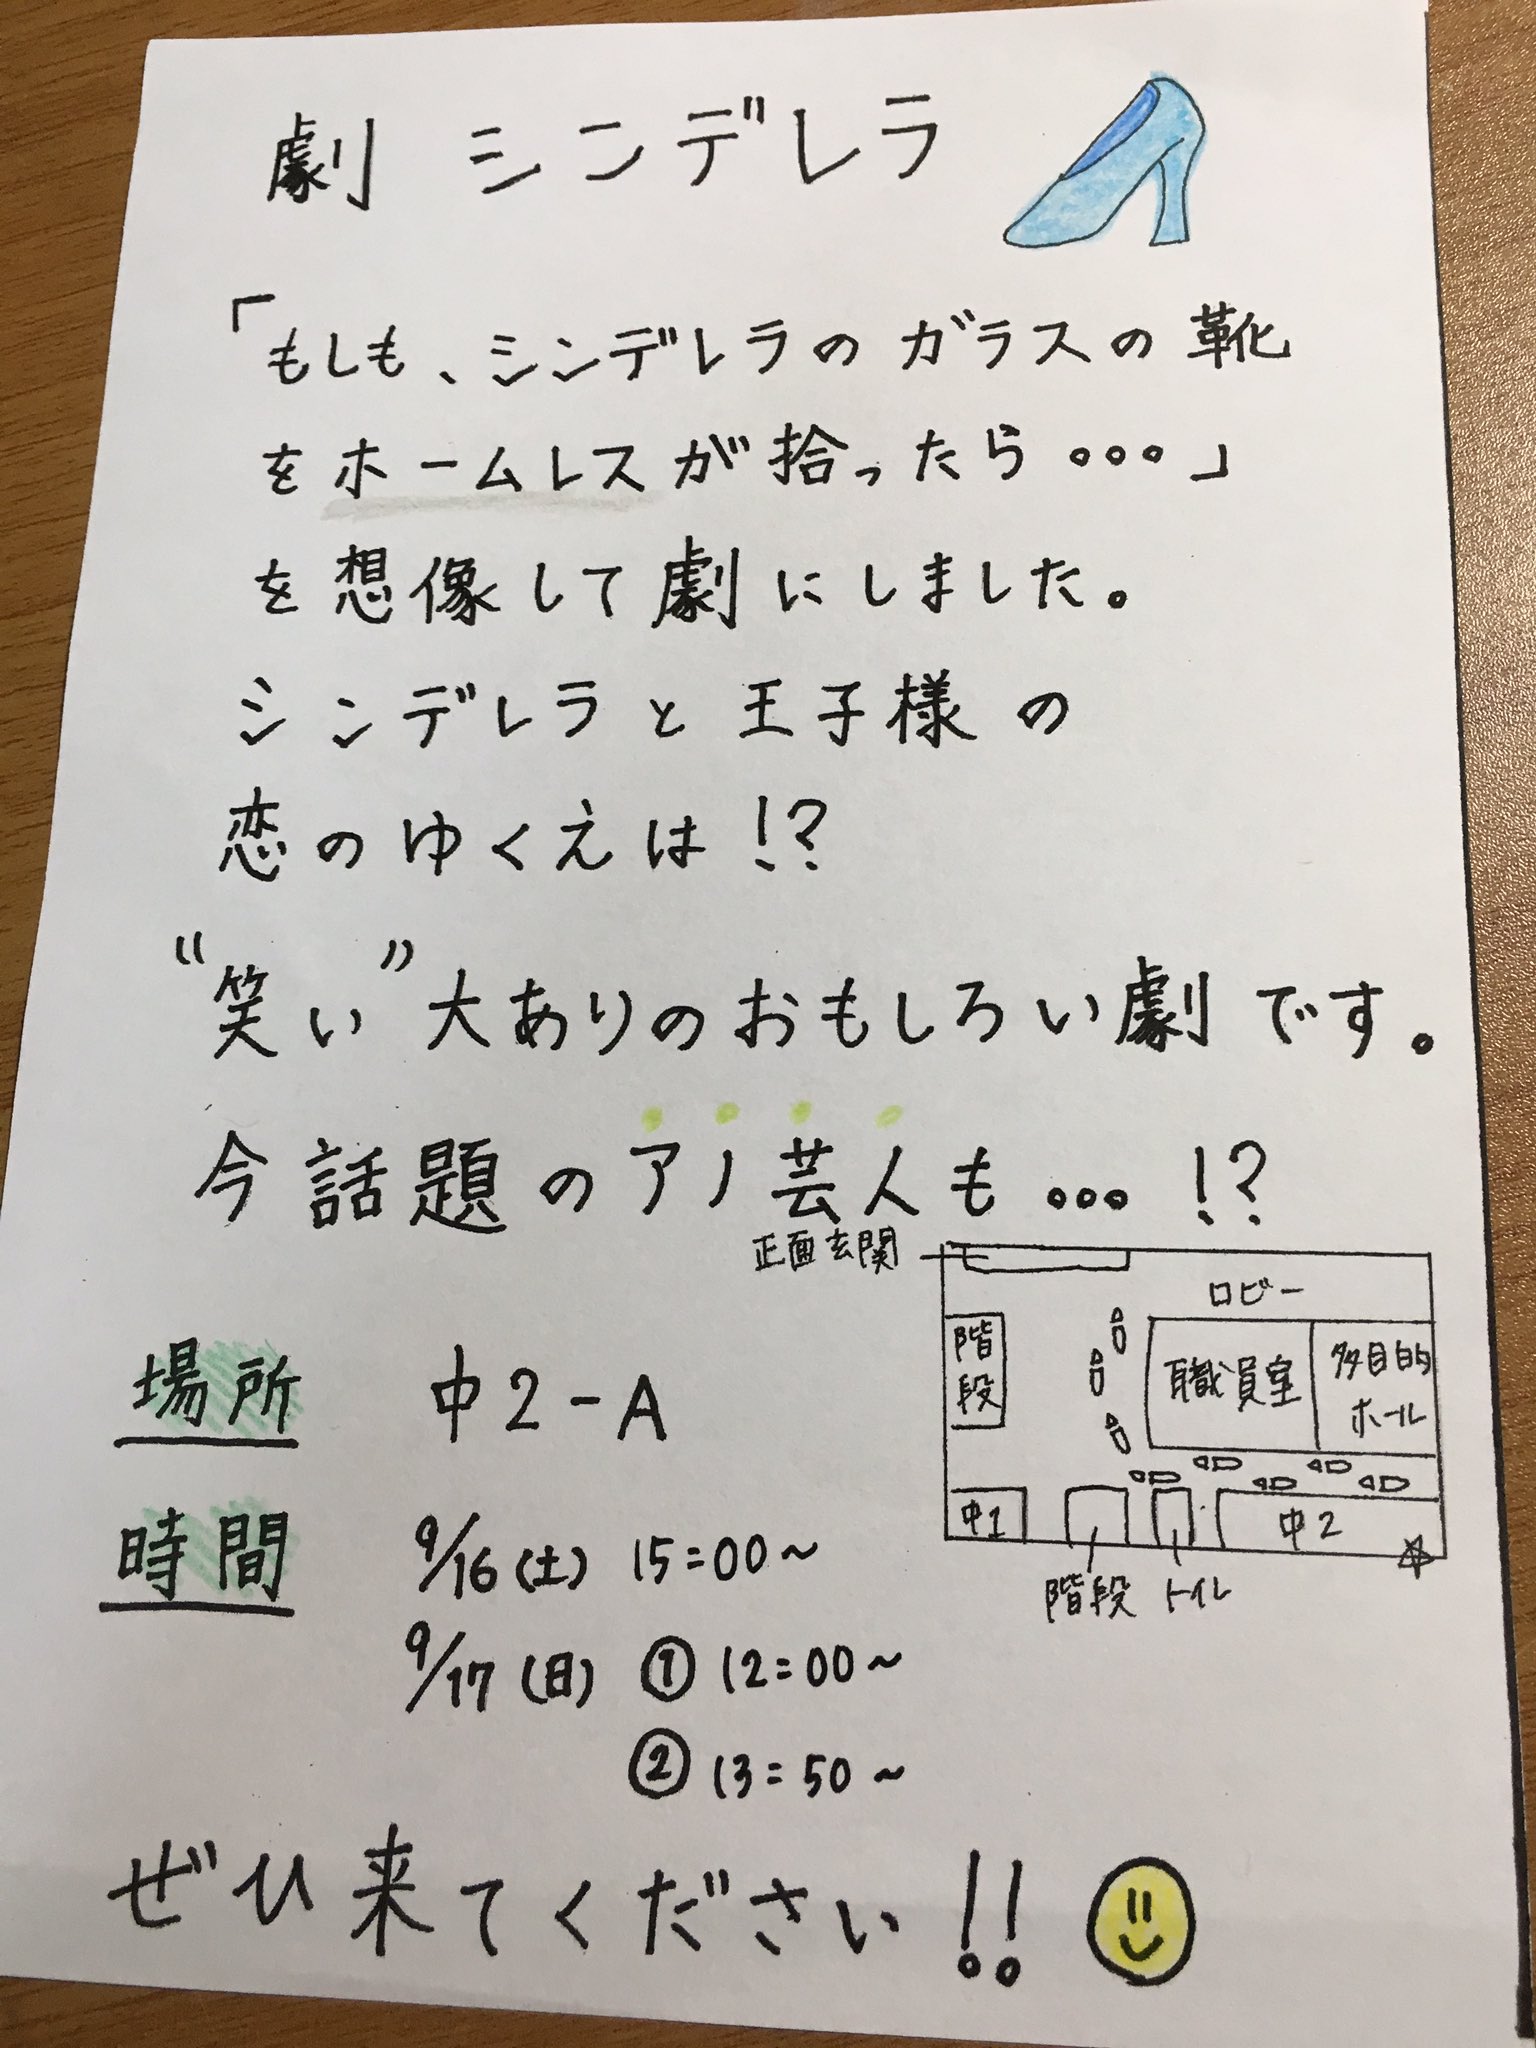 劇 シンデレラ
「もしも、シンデレラのガラスの靴
をホームレスが拾ったら…」
を想像して劇にしました。
シンデレラと王子様の
恋のゆくえは!?
"笑い"大ありのおもしろい劇です。
今話題のアノ芸人も…!?
正面玄関
ロビー
階段
職員室
多目的
ホール
中1
中2
階段 トイレ
場所 中2-A
時間 9/16(土) 15:00~
9/17(日) ①12:00~
②13:50~
ぜひ来てください!!